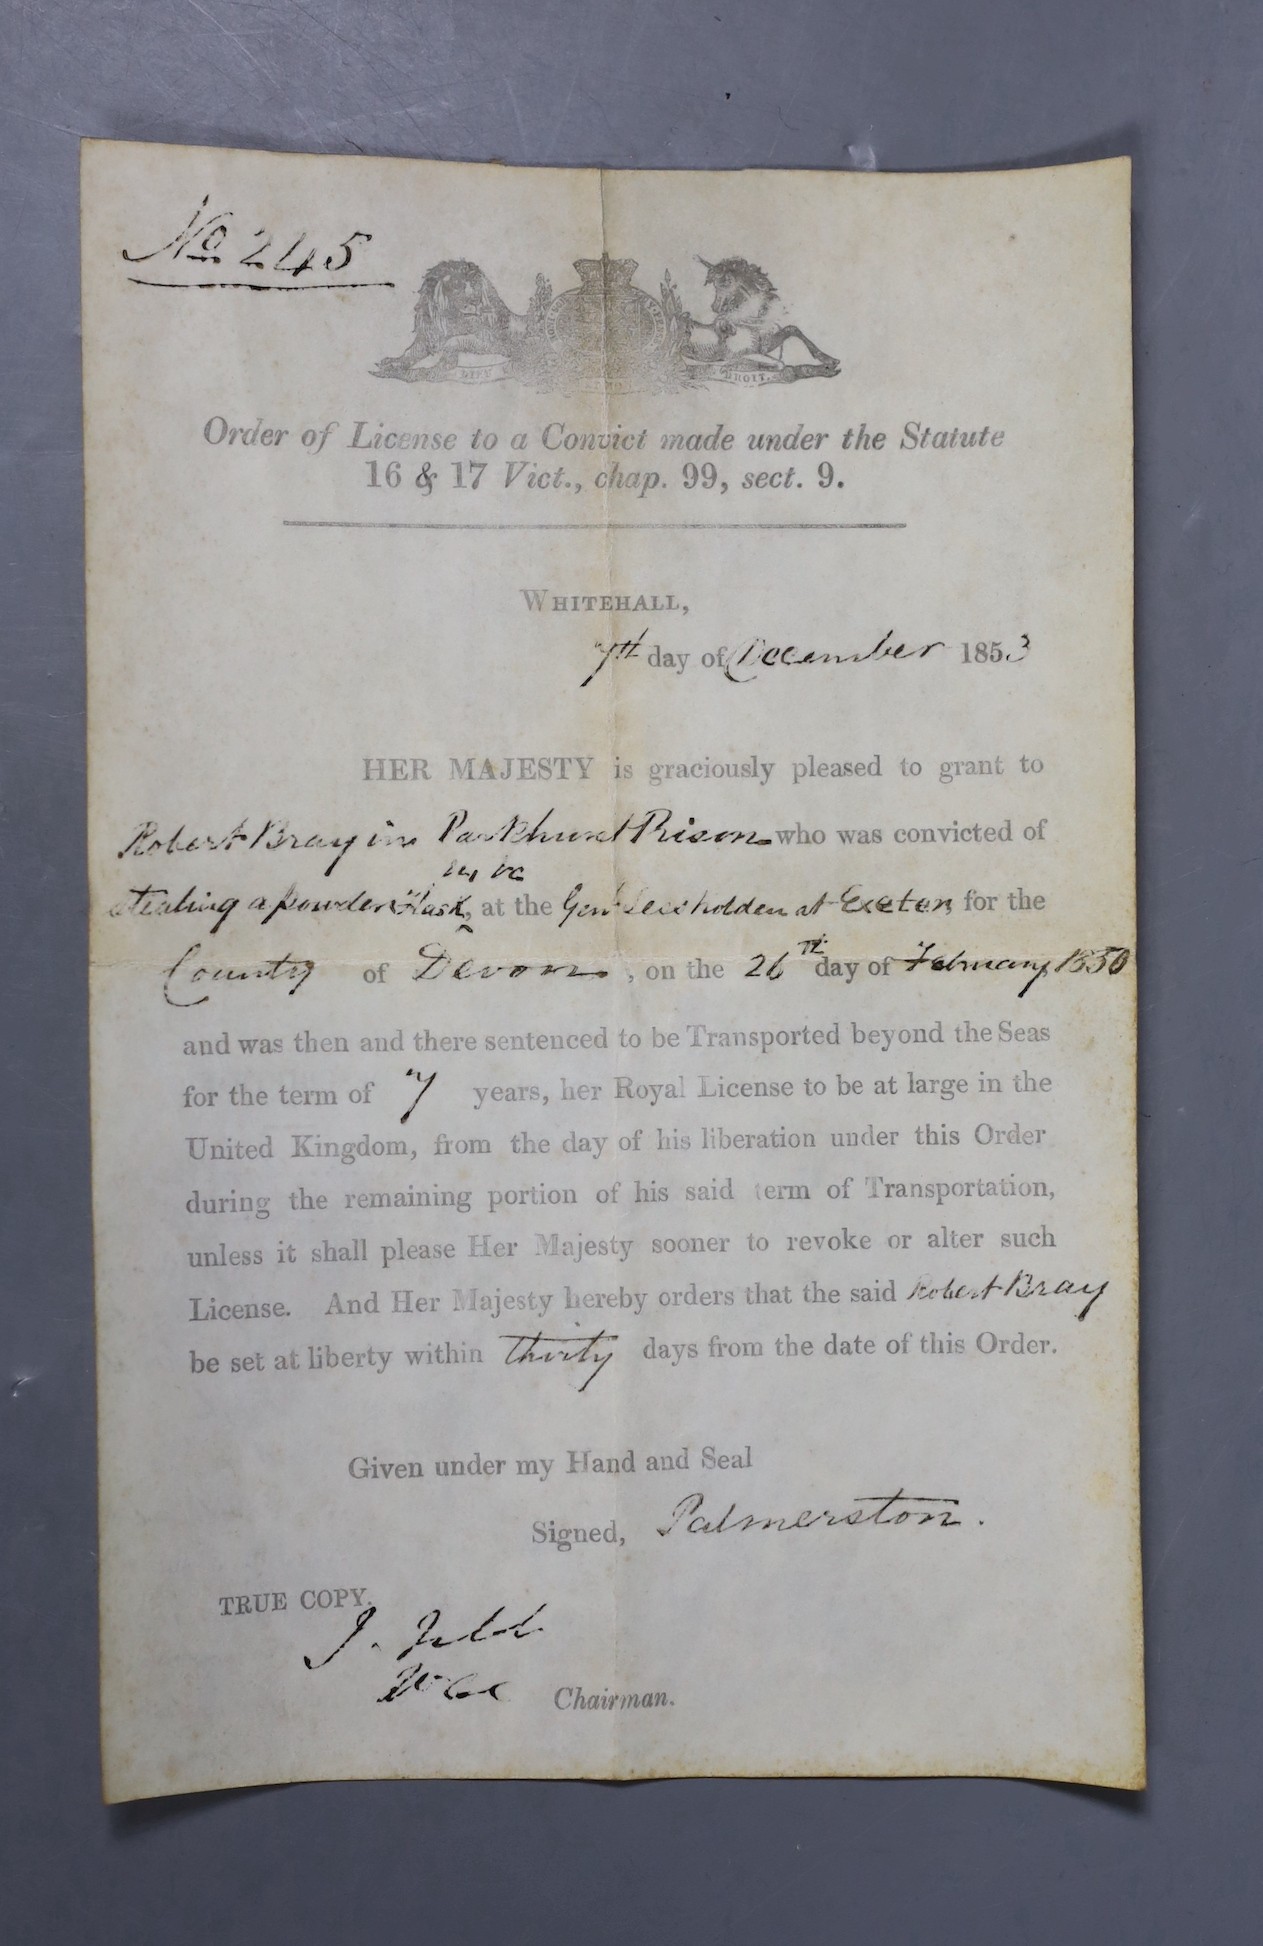 No 245
DIEU DROIT.
Order of License to a Convict made under the Statute
16 & 17 Vict., chap. 99, sect. 9.
WHITEHALL,
7th day of December 1853
HER MAJESTY is graciously pleased to grant to
Robert Bray in Parkhurst Prison who was convicted of
stealing a powder flask, at the Genl Sess holden at Exeter, for the
County of Devon, on the 26th day of February 1850
and was then and there sentenced to be Transported beyond the Seas
for the term of 7 years, her Royal License to be at large in the
United Kingdom, from the day of his liberation under this Order
during the remaining portion of his said term of Transportation,
unless it shall please Her Majesty sooner to revoke or alter such
License. And Her Majesty hereby orders that the said Robert Bray
be set at liberty within thirty days from the date of this Order.
Given under my Hand and Seal
Signed, Palmerston.
TRUE COPY.
J. Jebb
Chairman.